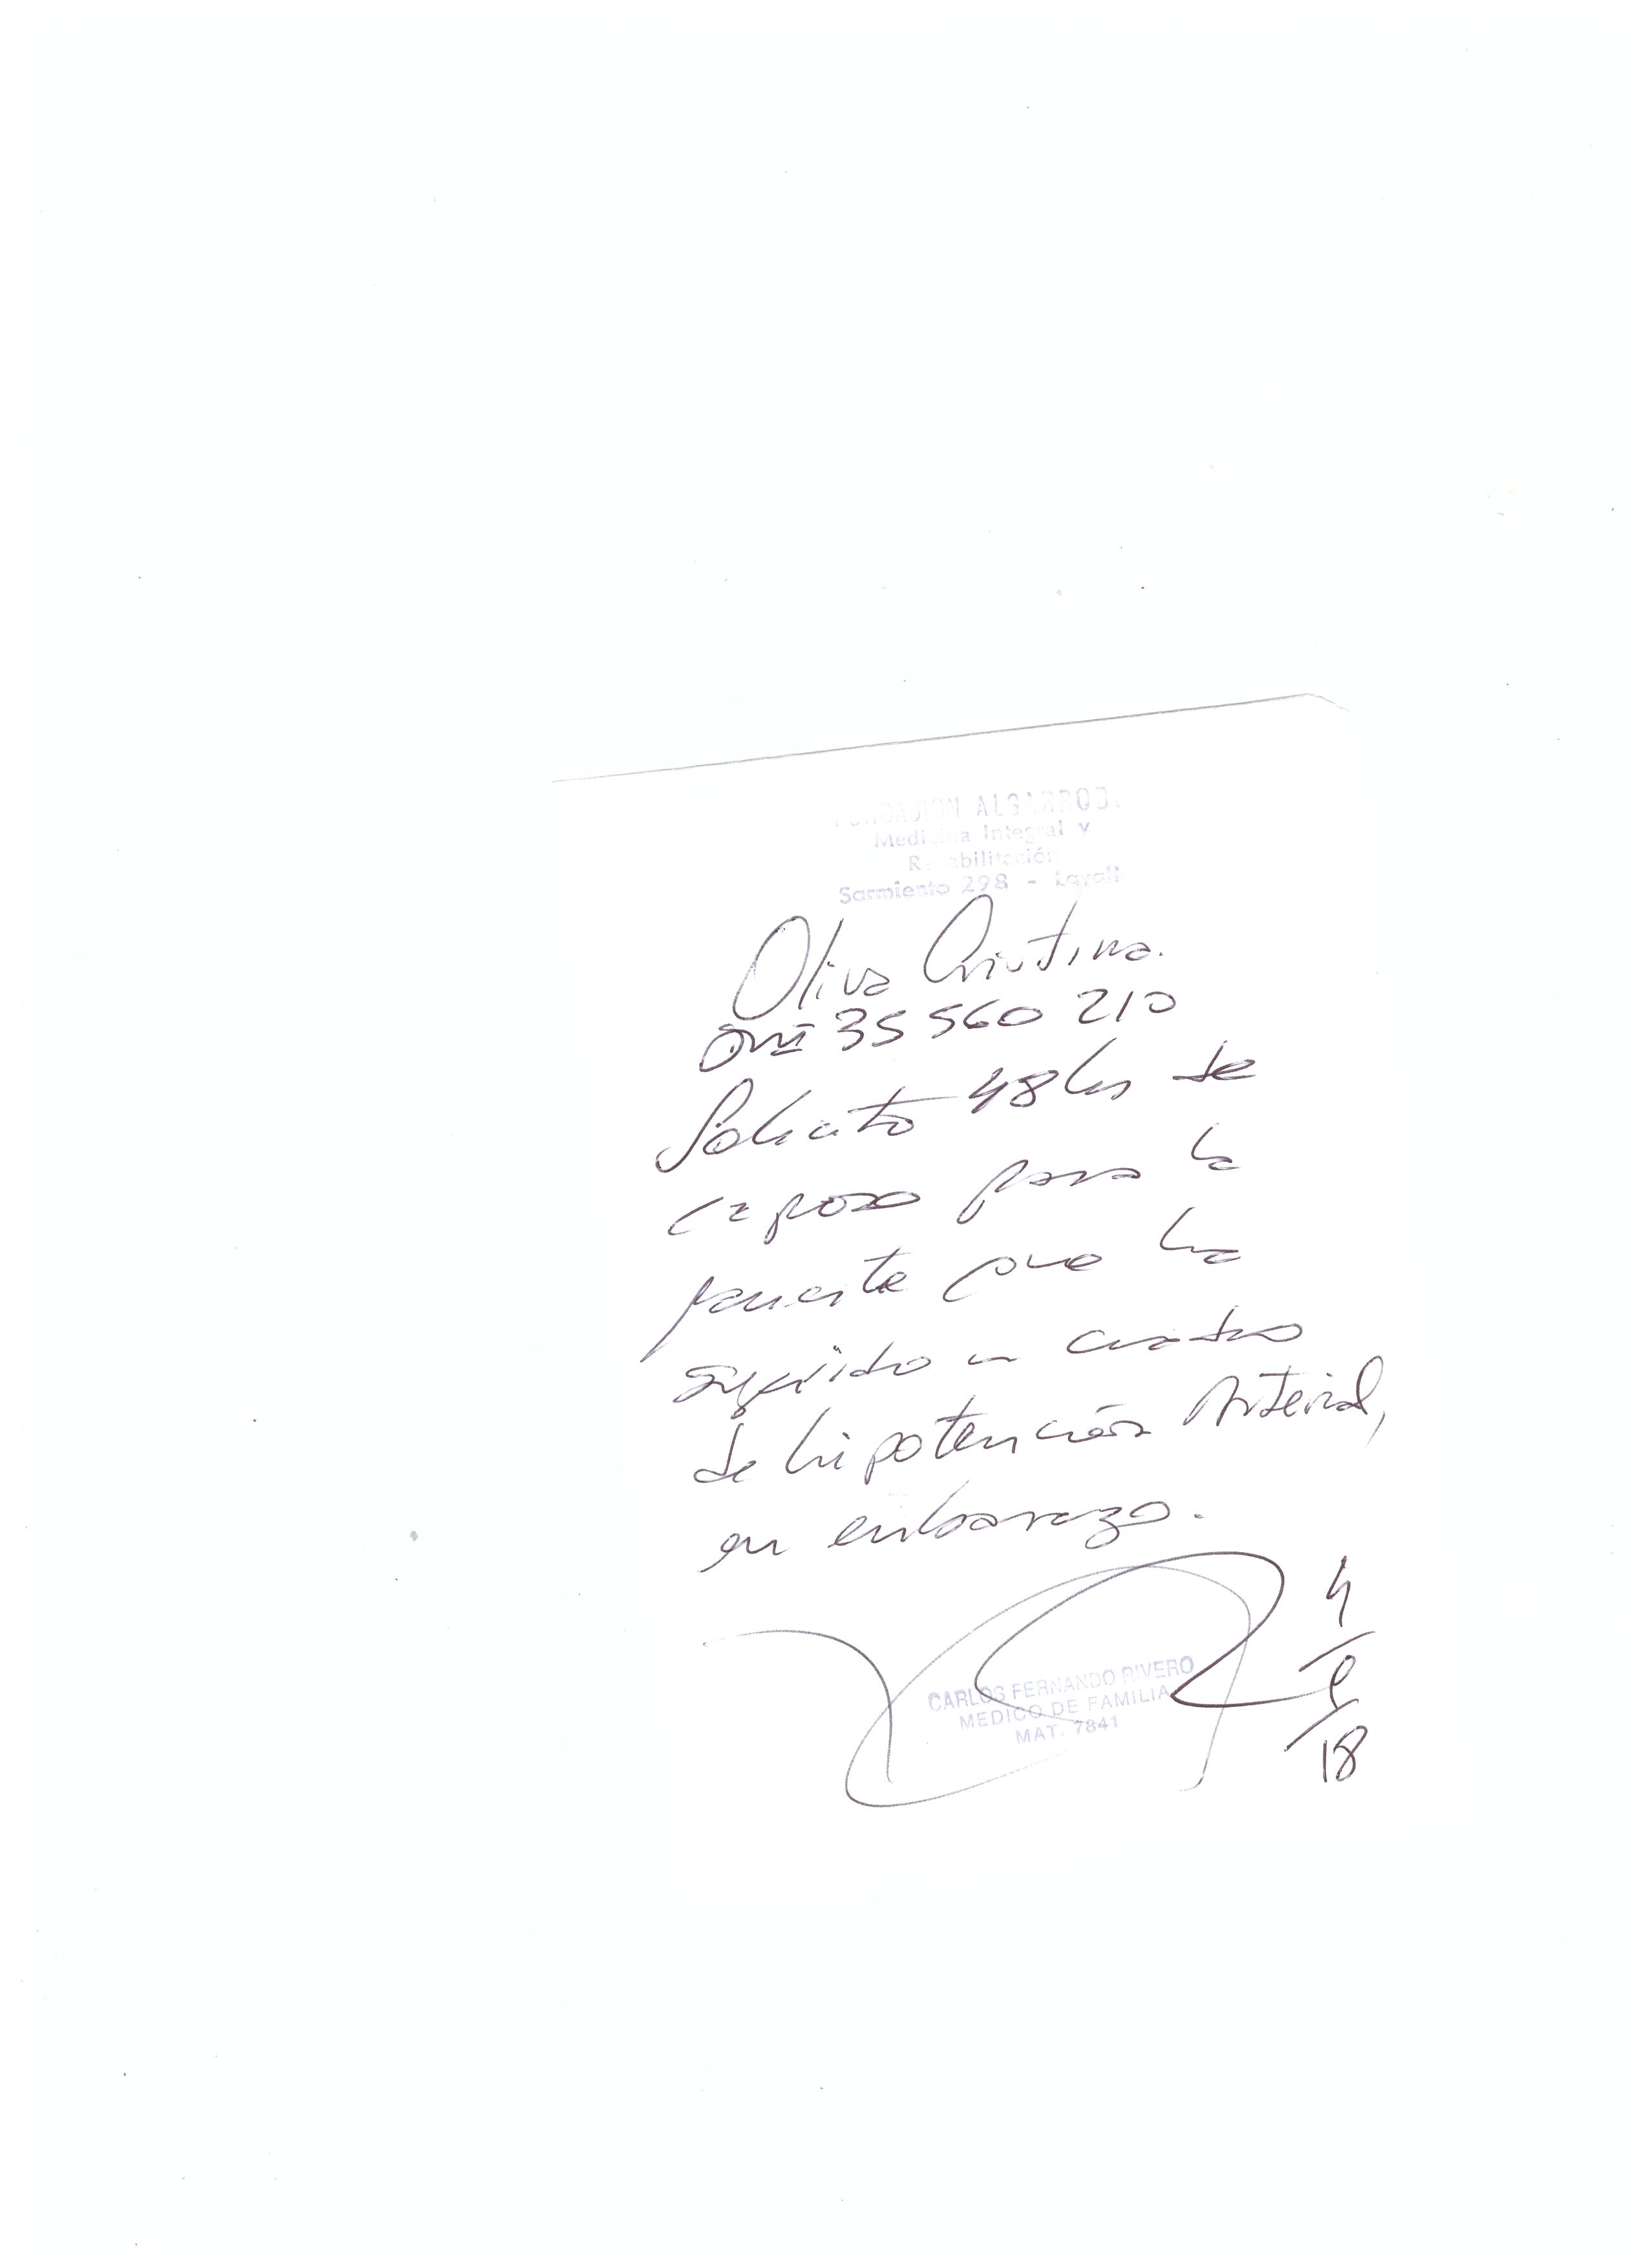 FUNDACION ALGARROB
Medicina Integral y
Rehabilitación
Sarmiento 298 - Lavalle
Oliva Cristina.
DNI 35 560 210
Solicito 48 hs de
reposo para la
paciente que ha
sufrido un cuadro
de hipotención Arterial,
en embarazo.
CARLOS FERNANDO RIVERO
MEDICO DE FAMILIA
MAT. 7841
4
18